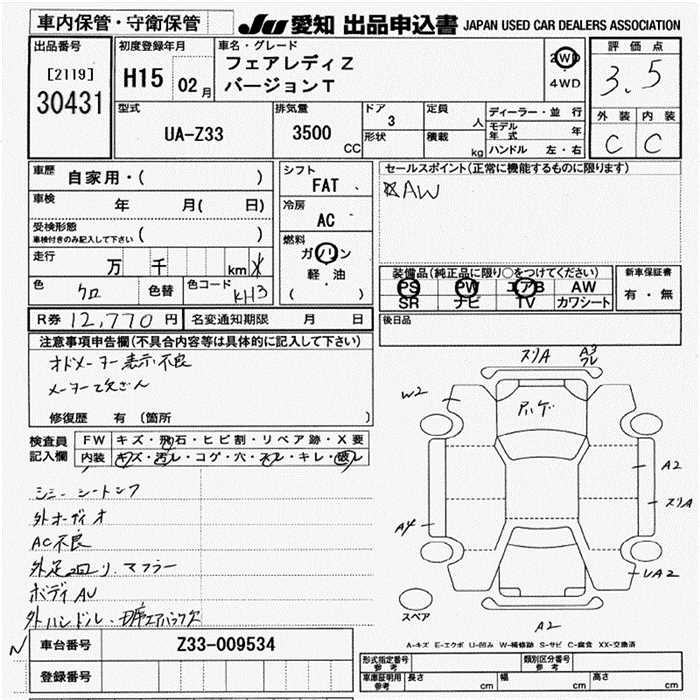 車内保管・守衛保管
JU 愛知 出品申込書 JAPAN USED CAR DEALERS ASSOCIATION
出品番号
[2119]
30431
初度登録年月
H15 02 月
車名・グレード
フェアレディZ
バージョンT
2WD
4WD
評価点
3.5
外装 内装
C C
型式
UA-Z33
排気量
3500 CC
ドア
3
形状
定員 人
積載 kg
ディーラー・並行
モデル年式 年
ハンドル 左・右
車歴 自家用・( )
車検 年 月( 日)
受検形態
車検付きのみ記入して下さい ( )
走行 万 千 km
色 クロ 色替 色コード KH3
シフト
FAT
冷房
AC
燃料
ガソリン
軽・油
( )
セールスポイント(正常に機能するものに限ります)
AW
装備品(純正品に限り○をつけてください)
PS PW エアB AW
SR ナビ TV カワシート
新車保証書
有・無
R券 12,770 円 名変通知期限 月 日
後日品
注意事項申告欄(不具合内容等は具体的に記入して下さい)
オドメーター表示不良
修復歴 有 (箇所 )
検査員
記入欄
FW キズ・飛石・ヒビ割・リペア跡・X要
内装 キズ・汚レ・コゲ・穴・スレ・キレ・破レ
外オーディオ
AC不良
スリA
A3
W2
A2
スリA
A4
UA2
スペア
A2
A-キズ E-エクボ U-凹み W-補修跡 S-サビ C-腐食 XX-交換済
車台番号 Z33-009534
登録番号
形式指定番号
参考
類別区分番号
参考
車庫証明用
参考
長さ cm 幅 cm 高さ cm